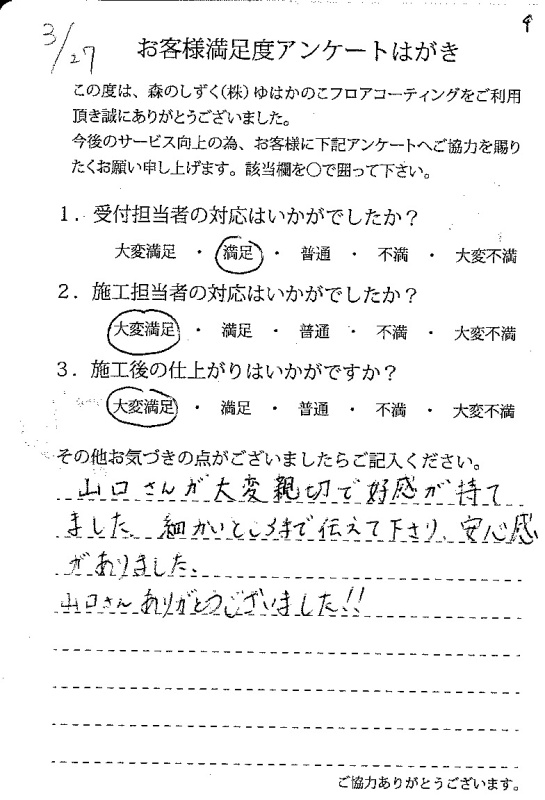 3/27
お客様満足度アンケートはがき
この度は、森のしずく(株)ゆはかのこフロアコーティングをご利用
頂き誠にありがとうございました。
今後のサービス向上の為、お客様に下記アンケートへご協力を賜り
たくお願い申し上げます。該当欄を〇で囲って下さい。
1．受付担当者の対応はいかがでしたか？
大変満足 ・ 満足 ・ 普通 ・ 不満 ・ 大変不満
2．施工担当者の対応はいかがでしたか？
大変満足 ・ 満足 ・ 普通 ・ 不満 ・ 大変不満
3．施工後の仕上がりはいかがですか？
大変満足 ・ 満足 ・ 普通 ・ 不満 ・ 大変不満
その他お気づきの点がございましたらご記入ください。
山口さんが大変親切で好感が持て
ました。細かいところまで伝えて下さり、安心感
がありました。
山口さんありがとうございました!!
ご協力ありがとうございます。